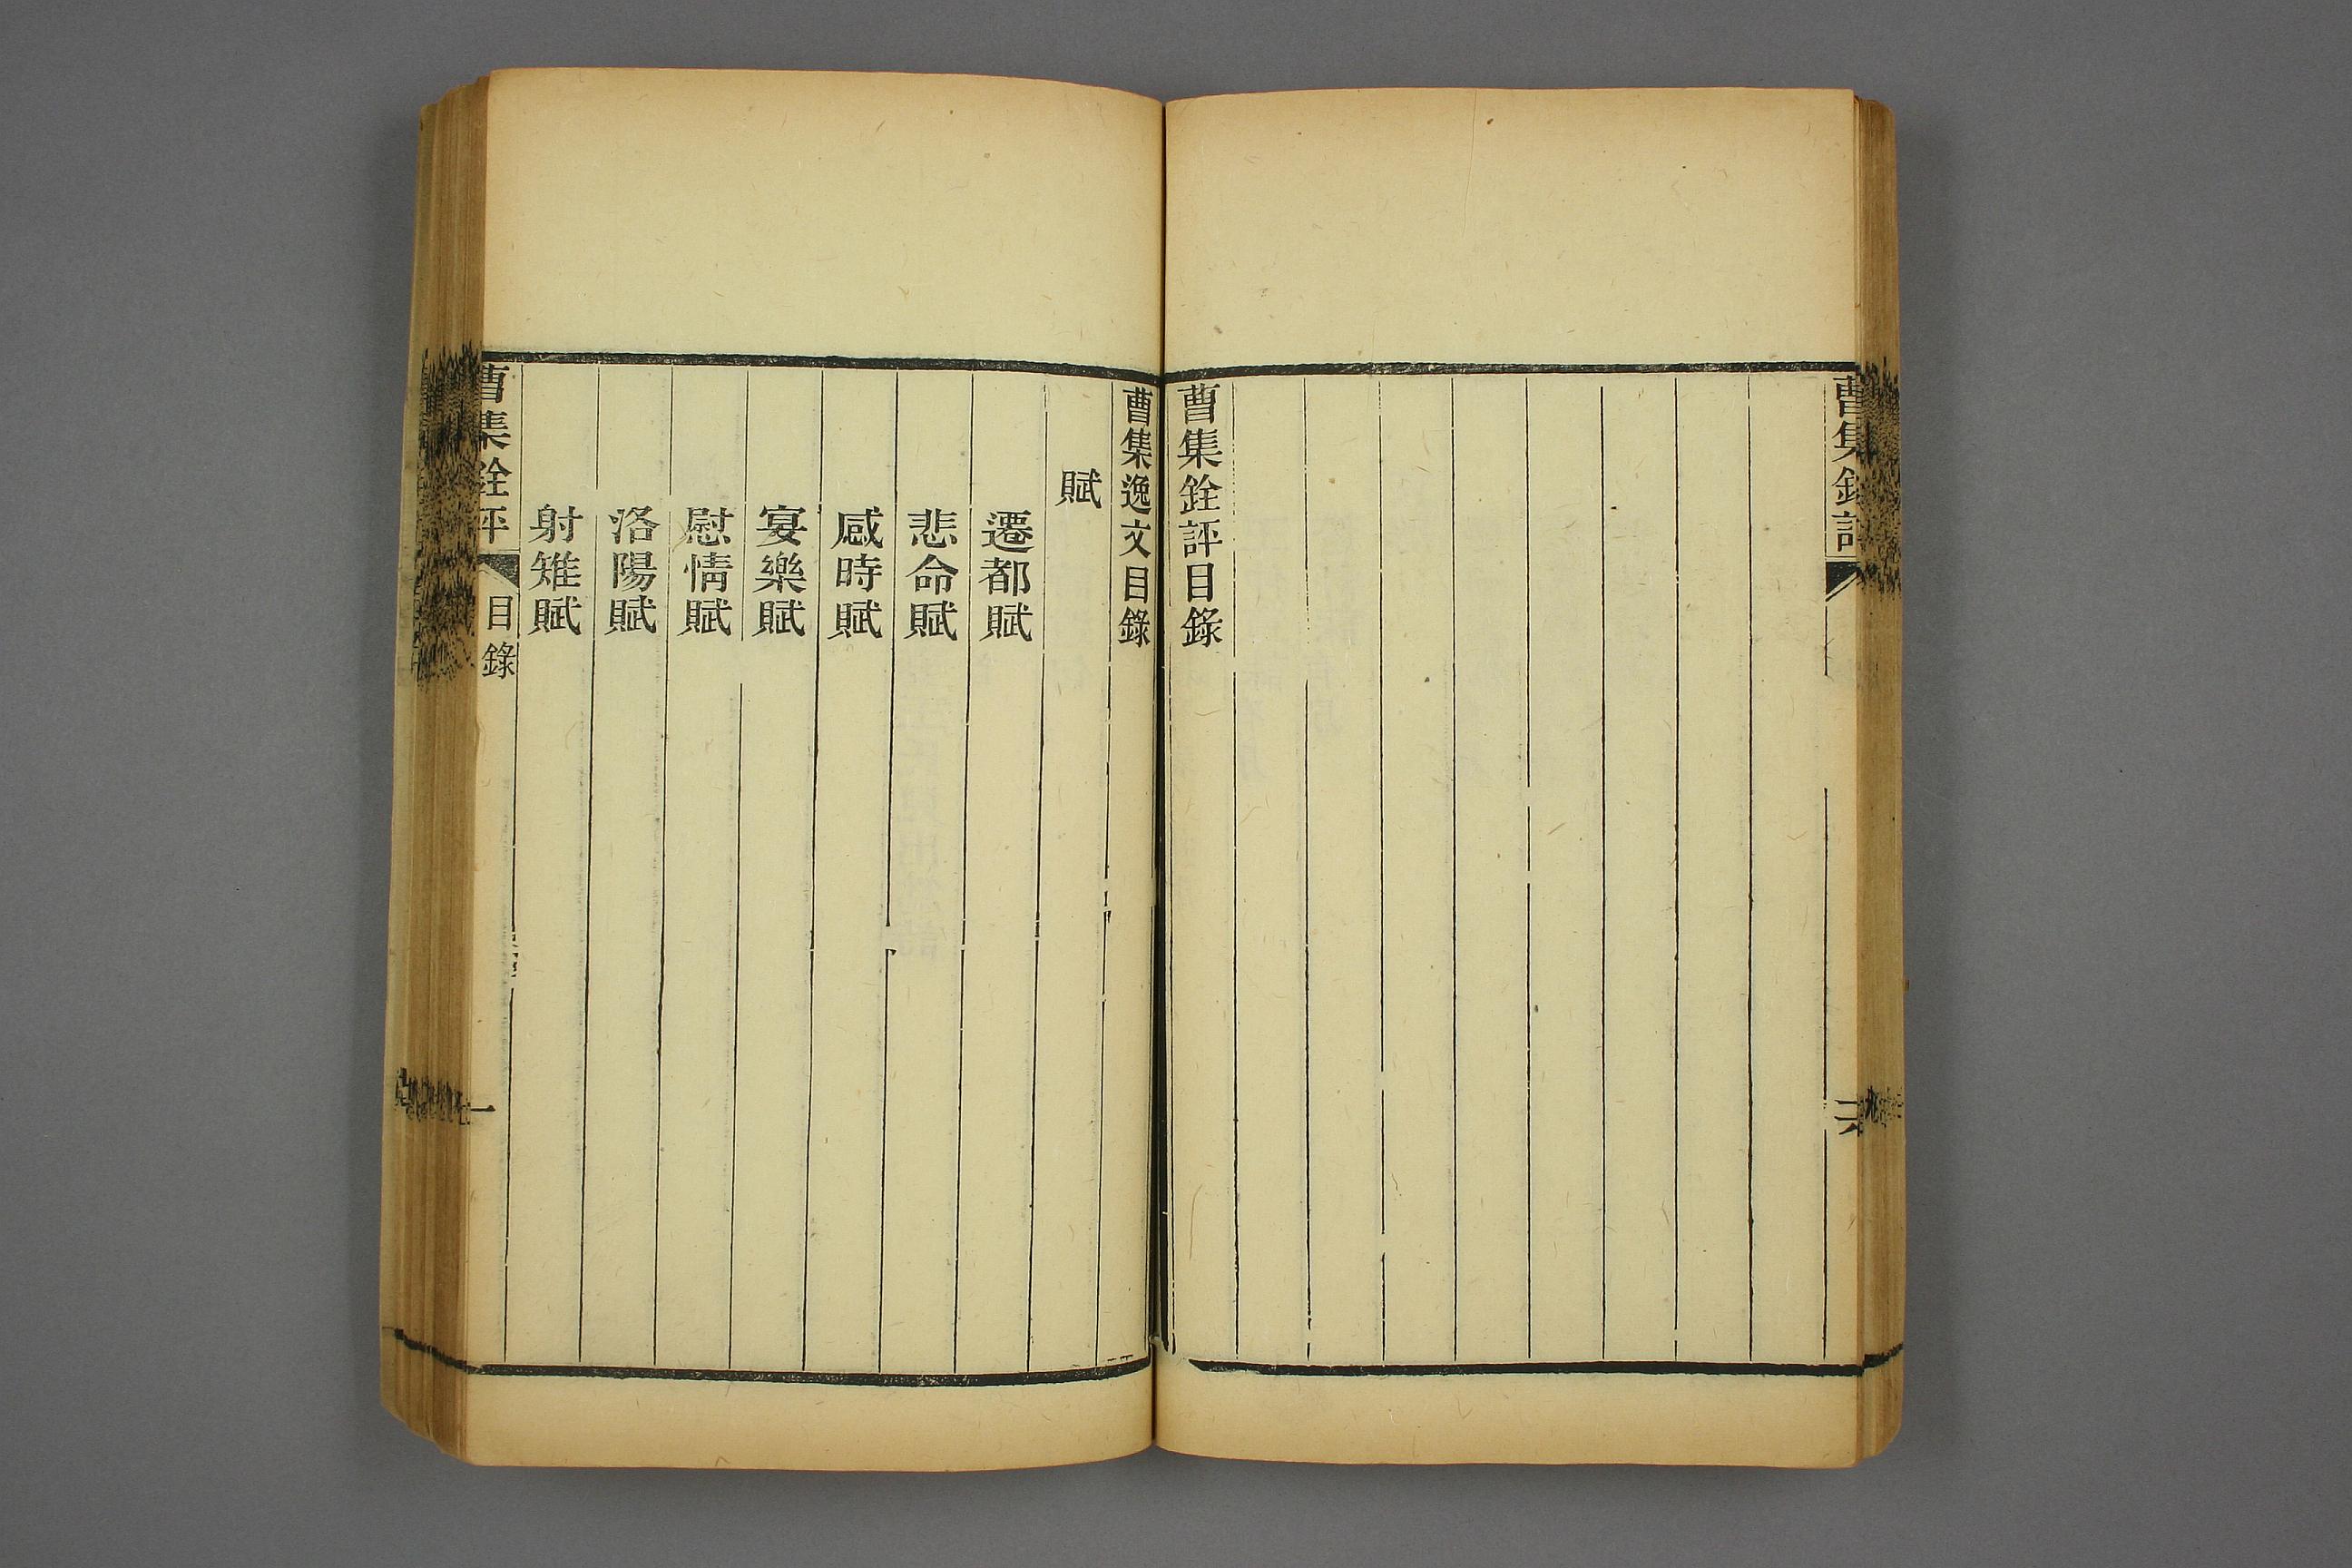 曹集銓評
六
曹集銓評目錄
曹集逸文目錄
賦
遷都賦
悲命賦
感時賦
宴樂賦
慰情賦
洛陽賦
射雉賦
曹集銓評
目錄
一